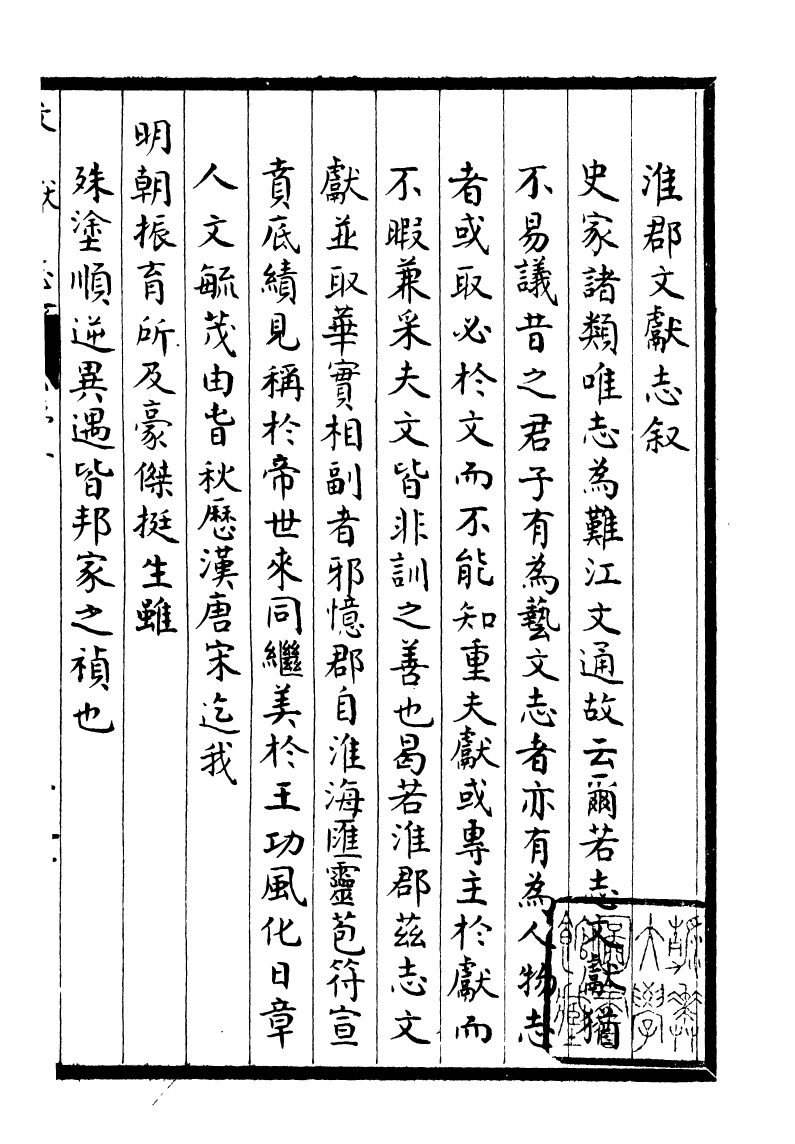 淮郡文獻志叙
史家諸類唯志為難江文通故云爾若志文獻猶
不易議昔之君子有為藝文志者亦有為人物志
者或取必於文而不能知重夫獻或專主於獻而
不暇兼采夫文皆非訓之善也曷若淮郡茲志文
獻並取華實相副者邪憶郡自淮海匯靈苞符宣
賁底績見稱於帝世來同繼美於王功風化日章
人文毓茂由旹秋歷漢唐宋迄我
明朝振育所及豪傑挺生雖
殊塗順逆異遇皆邦家之禎也
文獻志